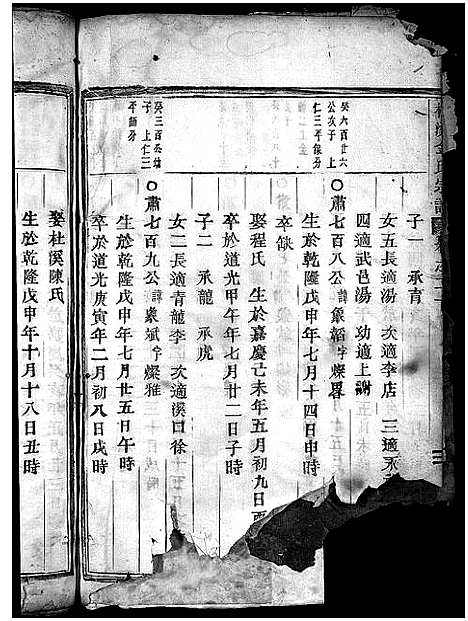 子一 承育
女五長適湯 次適李店 三適永
四適武邑湯 子功適上謝
癸六百廿六
公次子 上
仁三平緣分
〇肅七百八公諱象韜字燦畧
生於乾隆戊申年七月十四日申時
卒缺
娶程氏 生於嘉慶己未年五月初九日酉
卒於道光甲午年七月廿二日子時
子二 承龍 承虎
女二長適青龍李 次適溪口徐
癸三百
子 上仁三
平 分
〇肅七百九公諱象斌字燦雅
生於乾隆戊申年七月廿五日午時
卒於道光庚寅年二月初八日戌時
娶社溪陳氏
生於乾隆戊申年十月十八日丑時